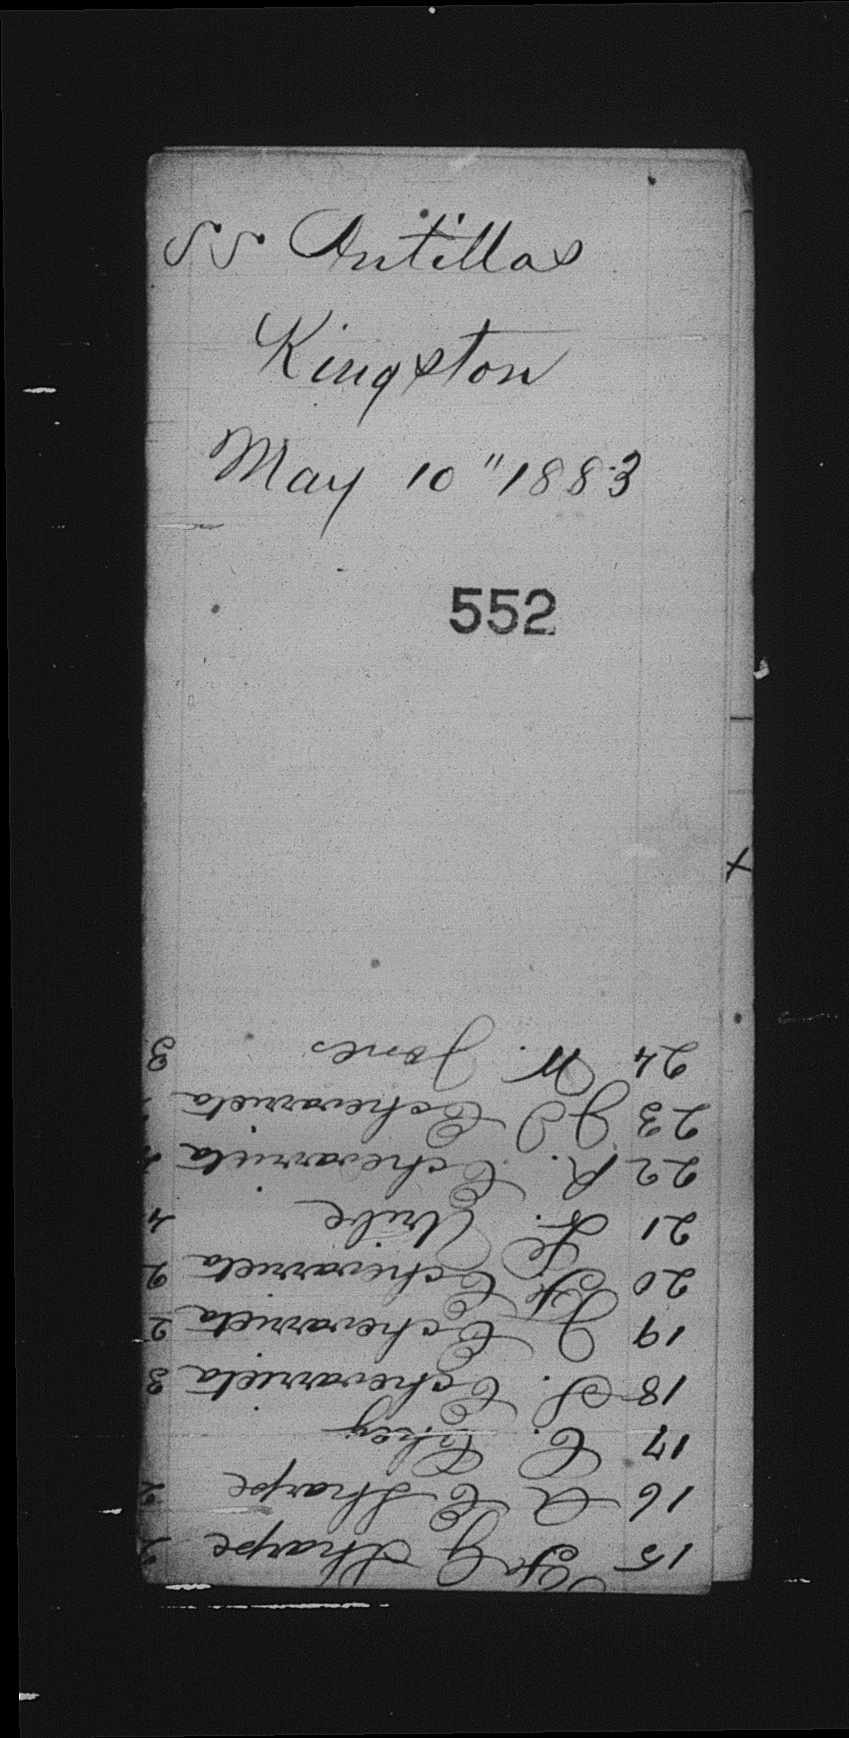 SS Antillas
Kingston
May 10" 1883
552
x
15 G Sharpe
16 A E Sharpe
17 C.
18 S. Echevarrieta 3
19 J Echevarrieta 2
20 Echevarrieta 2
21 L. Uribe 4
22 R. Echevarrieta
23 J J Echevarrieta
24 W. Jones 3